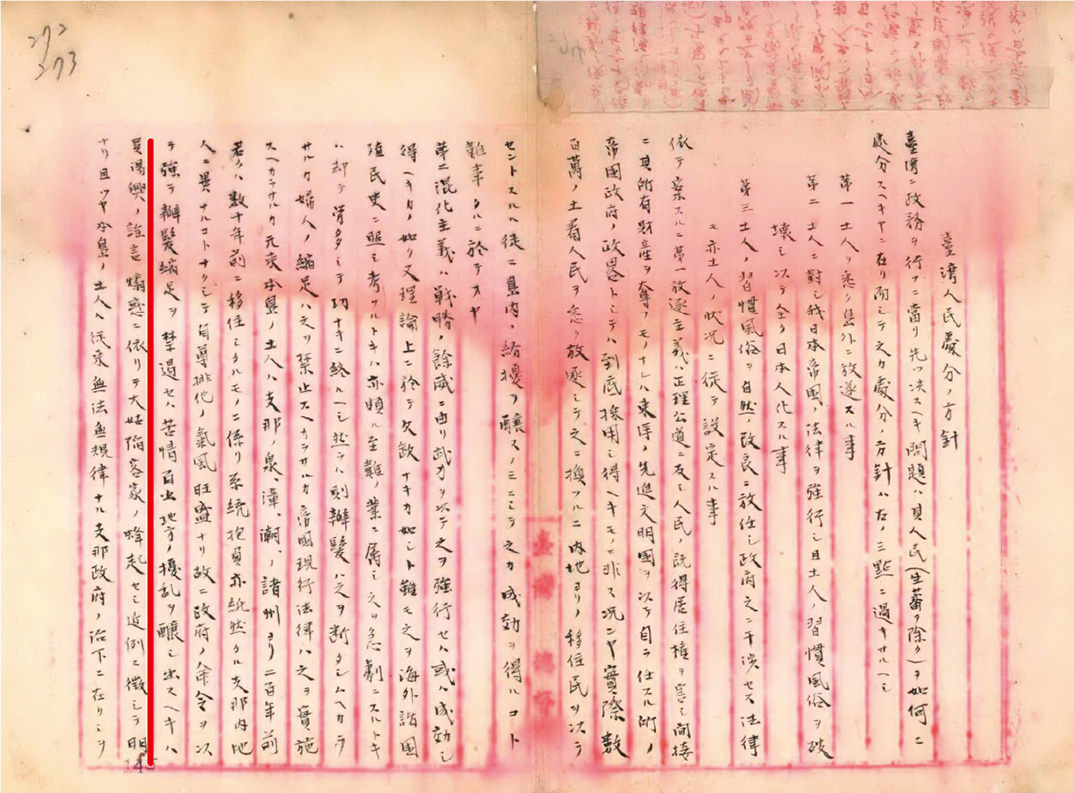 臺湾人民處分ノ方針
臺湾ニ政務ヲ行フニ當リ先ツ決スヘキ問題ハ其人民(生蕃ヲ除ク)ヲ如何ニ
處分スヘキヤニ在リ而シテ之カ處分ノ方針ハ左ノ三點ニ過キサルヘシ
第一土人ヲ悉ク島外ニ放逐スル事
第二土人ニ對シ我日本帝國ノ法律ヲ強行シ且土人ノ習慣風俗ヲ破
壊シ以テ全ク日本人化スル事
第三土人ノ習慣風俗ヲ自然ノ改良ニ放任シ政府之ニ干渉セス法律
モ亦土人ノ状况ニ従テ設定スル事
依テ案スルニ第一放逐主義ハ正理公道ニ反シ人民ノ既得居住権ヲ害シ間接
ニ其所有財産ヲ奪フモノナレハ東洋ノ先進文明國ヲ以テ自ラ任スル所ノ
帝國政府ノ政畧トシテハ到底採用シ得ヘキモノニ非ス况ンヤ實際數
百萬ノ土着人民ヲ悉ク放逐シテ之ニ換フルニ内地ヨリノ移住民ヲ以テ
セントスルハ徒ニ島内ノ紛擾ヲ醸スノミニシテ之カ成効ヲ得ルコト
難事タルニ於テオヤ
第二混化主義ハ戦勝ノ餘威ニ由リ武力ヲ以テ之ヲ強行セハ或ハ成効シ
得ヘキカ如ク又理論上ニ於テ欠缺ナキカ如シト雖モ之ヲ海外諸国
殖民史ニ照シ考フルトキハ亦頗ル至難ノ業ニ属シ之ヲ急劇ニスルトキ
ハ却テ労多クシテ功ナキニ終ルヘシ然ラハ則辮髪ハ之ヲ断タシムヘカラ
サルカ婦人ノ縮足ハ之ヲ禁止スヘカラサルカ帝國現行法律ハ之ヲ實施
スヘカラサルカ元来本島ノ土人ハ支那ノ泉、漳、潮、ノ諸州ヨリ二百年前
若クハ数十年前ニ移住シタルモノニ係リ系統抱負亦純然タル支那内地
人ニ異ナルコトナクシテ自尊排他ノ氣風旺盛ナリ故ニ政府ノ命令ヲ以
テ強テ辮髪縮足ヲ禁遏セハ苦情百出地方ノ擾乱ヲ醸シ出スヘキハ
呉湯興ノ誑言煽惑ニ依リテ大姑陥客家ノ蜂起セシ近例ニ徴シテ明
ナリ且ツヤ本島ノ土人ハ従来無法無規律ナル支那政府ノ治下ニ在リシヲ
272
273
145